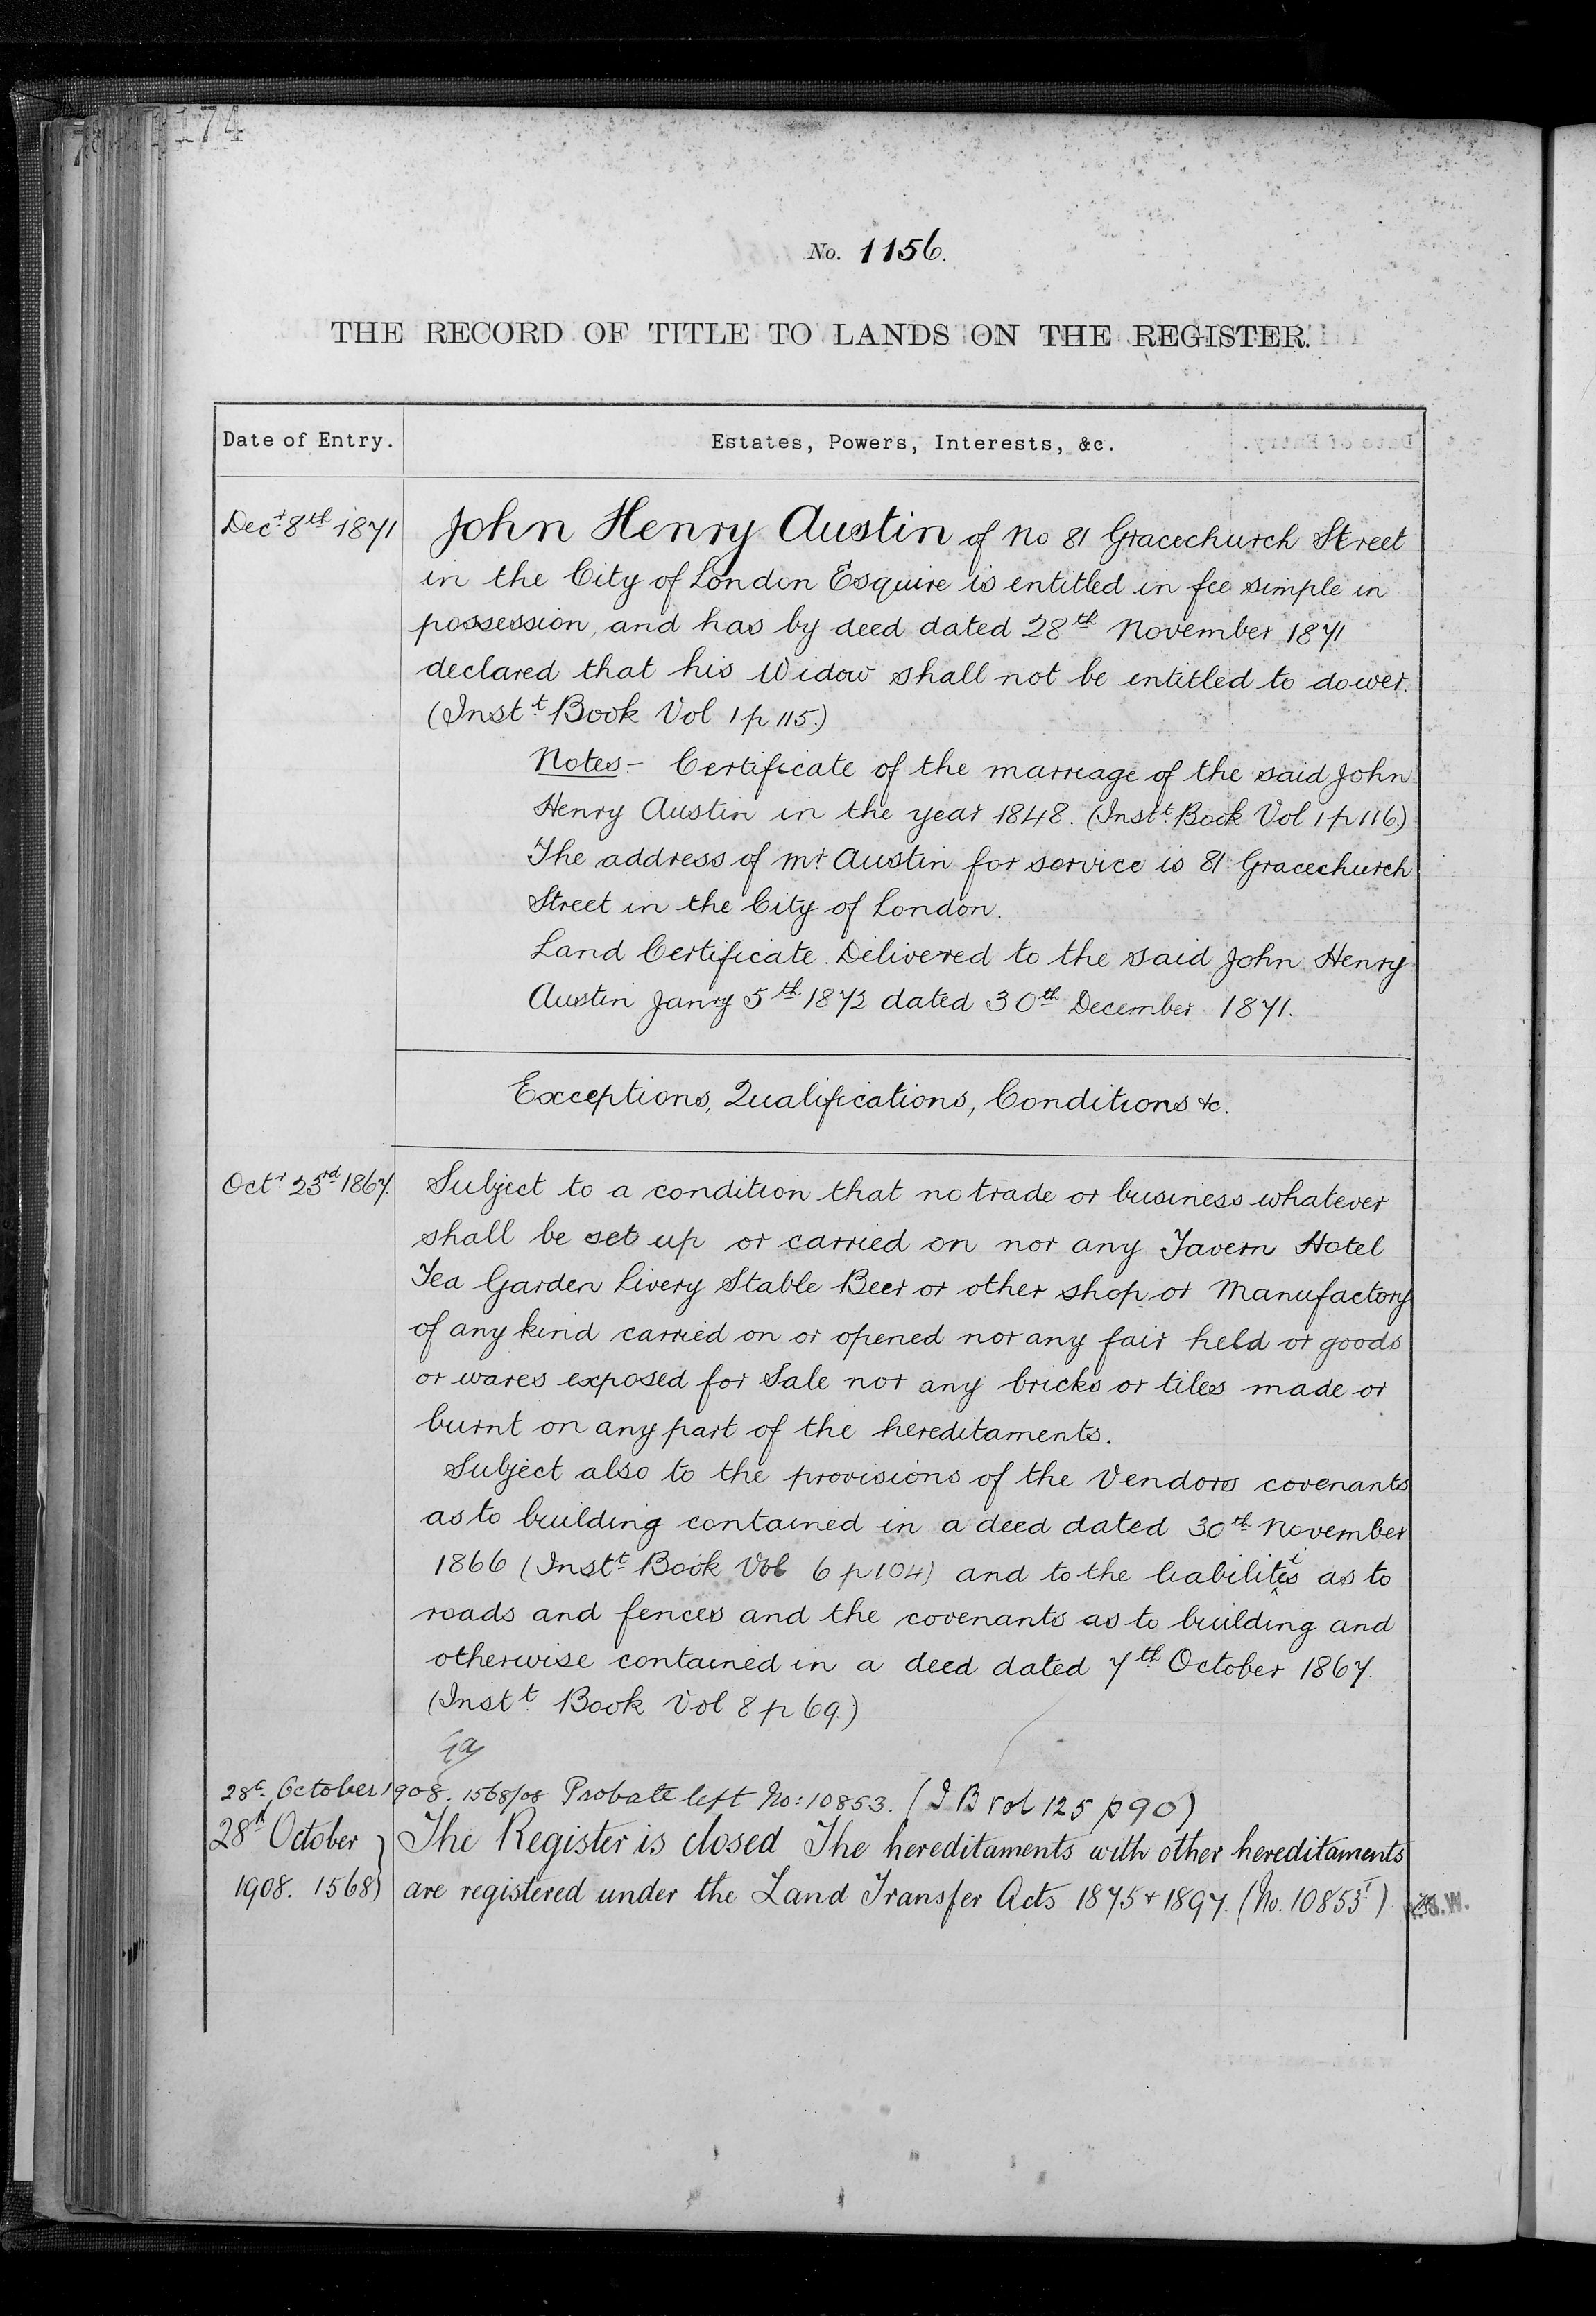 174
No. 1156.
THE RECORD OF TITLE TO LANDS ON THE REGISTER.
Date of Entry. Estates, Powers, Interests, &c.
Decr 8th 1871 John Henry Austin of No 81 Gracechurch Street
in the City of London Esquire is entitled in fee simple in
possession, and has by deed dated 28th November 1871
declared that his Widow shall not be entitled to dower.
(Instt Book Vol 1 p 115.)
Notes - Certificate of the marriage of the said John
Henry Austin in the year 1848. (Instt Book Vol 1 p 116.)
The address of Mr Austin for service is 81 Gracechurch
Street in the City of London.
Land Certificate. Delivered to the said John Henry
Austin Janry 5th 1872 dated 30th December 1871.
Exceptions, Qualifications, Conditions &c.
Octr 23rd 1867. Subject to a condition that no trade or business whatever
shall be set up or carried on nor any Tavern Hotel
Tea Garden Livery Stable Beer or other shop or Manufactory
of any kind carried on or opened nor any fair held or goods
or wares exposed for Sale nor any bricks or tiles made or
burnt on any part of the hereditaments.
Subject also to the provisions of the Vendors covenants
as to building contained in a deed dated 30th November
1866 (Instt Book Vol 6 p 104) and to the liabilities as to
roads and fences and the covenants as to building and
otherwise contained in a deed dated 7th October 1867.
(Instt Book Vol 8 p 69.)
28th October 1908. 1568/08 Probate left No: 10853. (I B vol 125 p 90)
28th October } The Register is closed The hereditaments with other hereditaments
1908. 1568 } are registered under the Land Transfer Acts 1875 & 1897. (No. 10853)